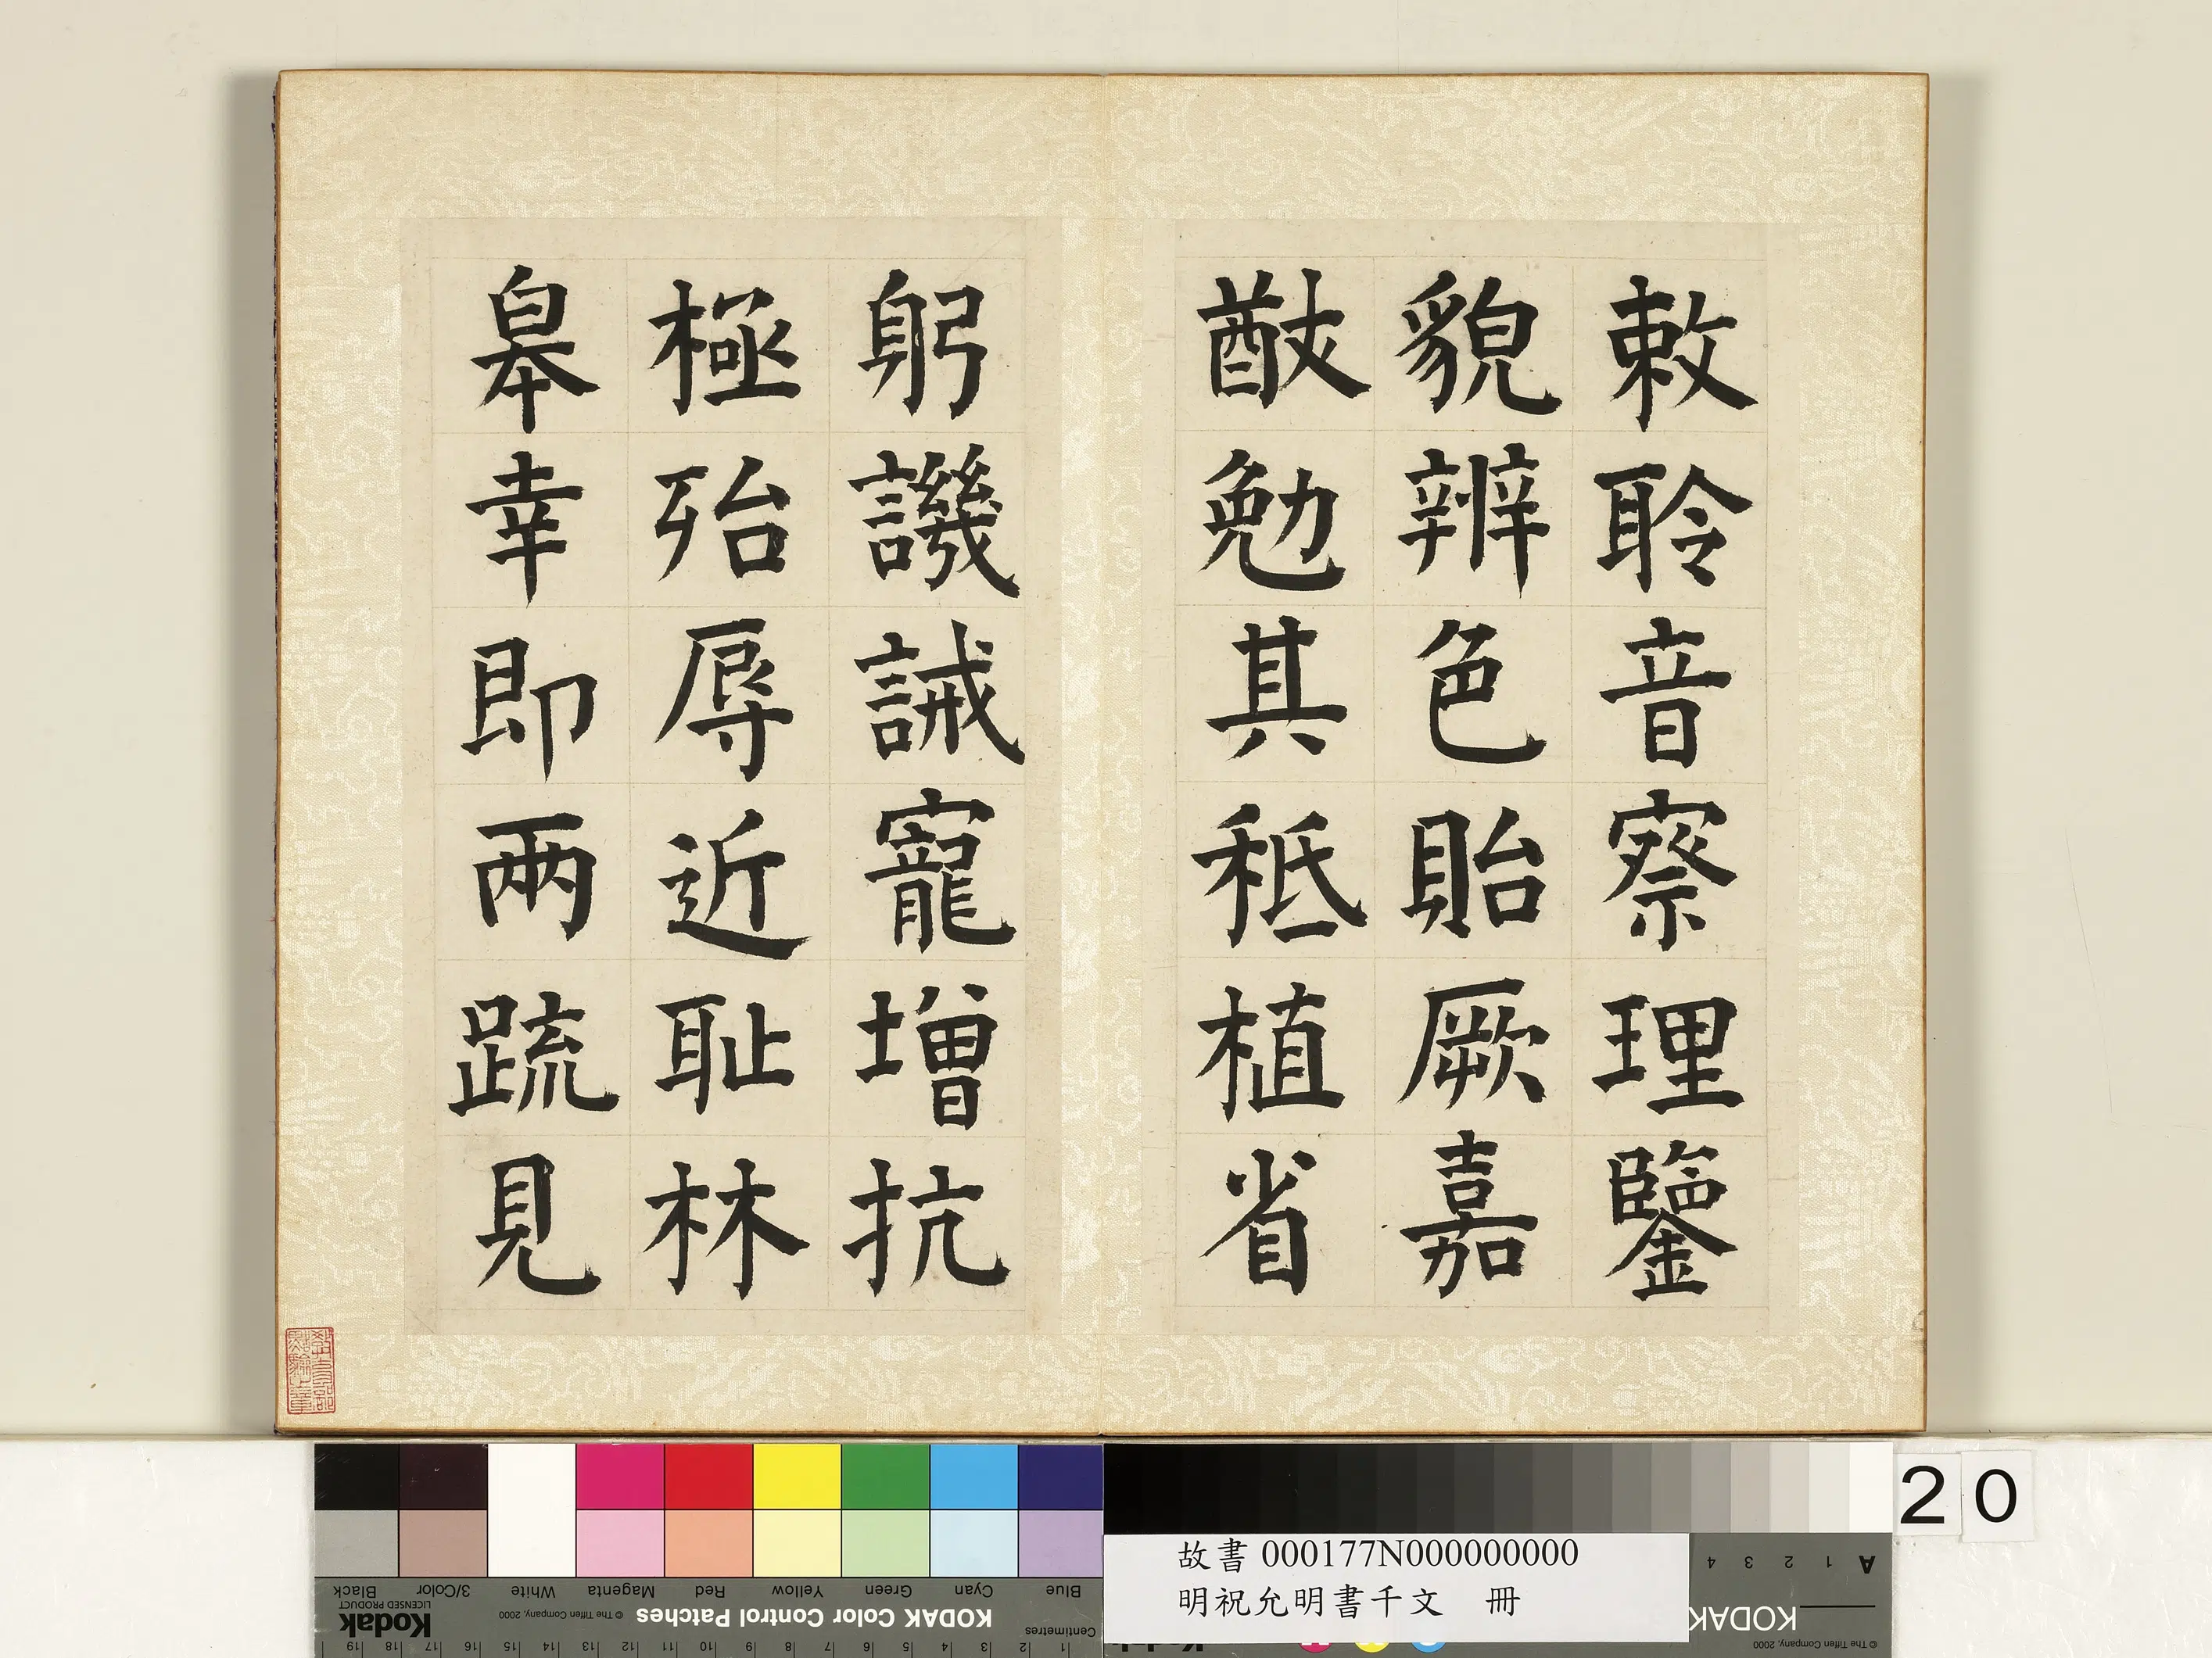 敕聆音察理鑒
貌辨色貽厥嘉
猷勉其秪植省
躬譏誡寵增抗
極殆辱近恥林
皋幸即兩疏見
20
故書 000177N000000000
明祝允明書千文 冊
Black 3/Color White Magenta Red Yellow Green Cyan Blue
Kodak
LICENSED PRODUCT
© The Tiffen Company, 2000
KODAK Color Control Patches
Centimetres
1 2 3 4 5 6 7 8 9 10 11 12 13 14 15 16 17 18 19
A 1 2 3 4
KODAK
© The Tiffen Company, 2000
Kodak